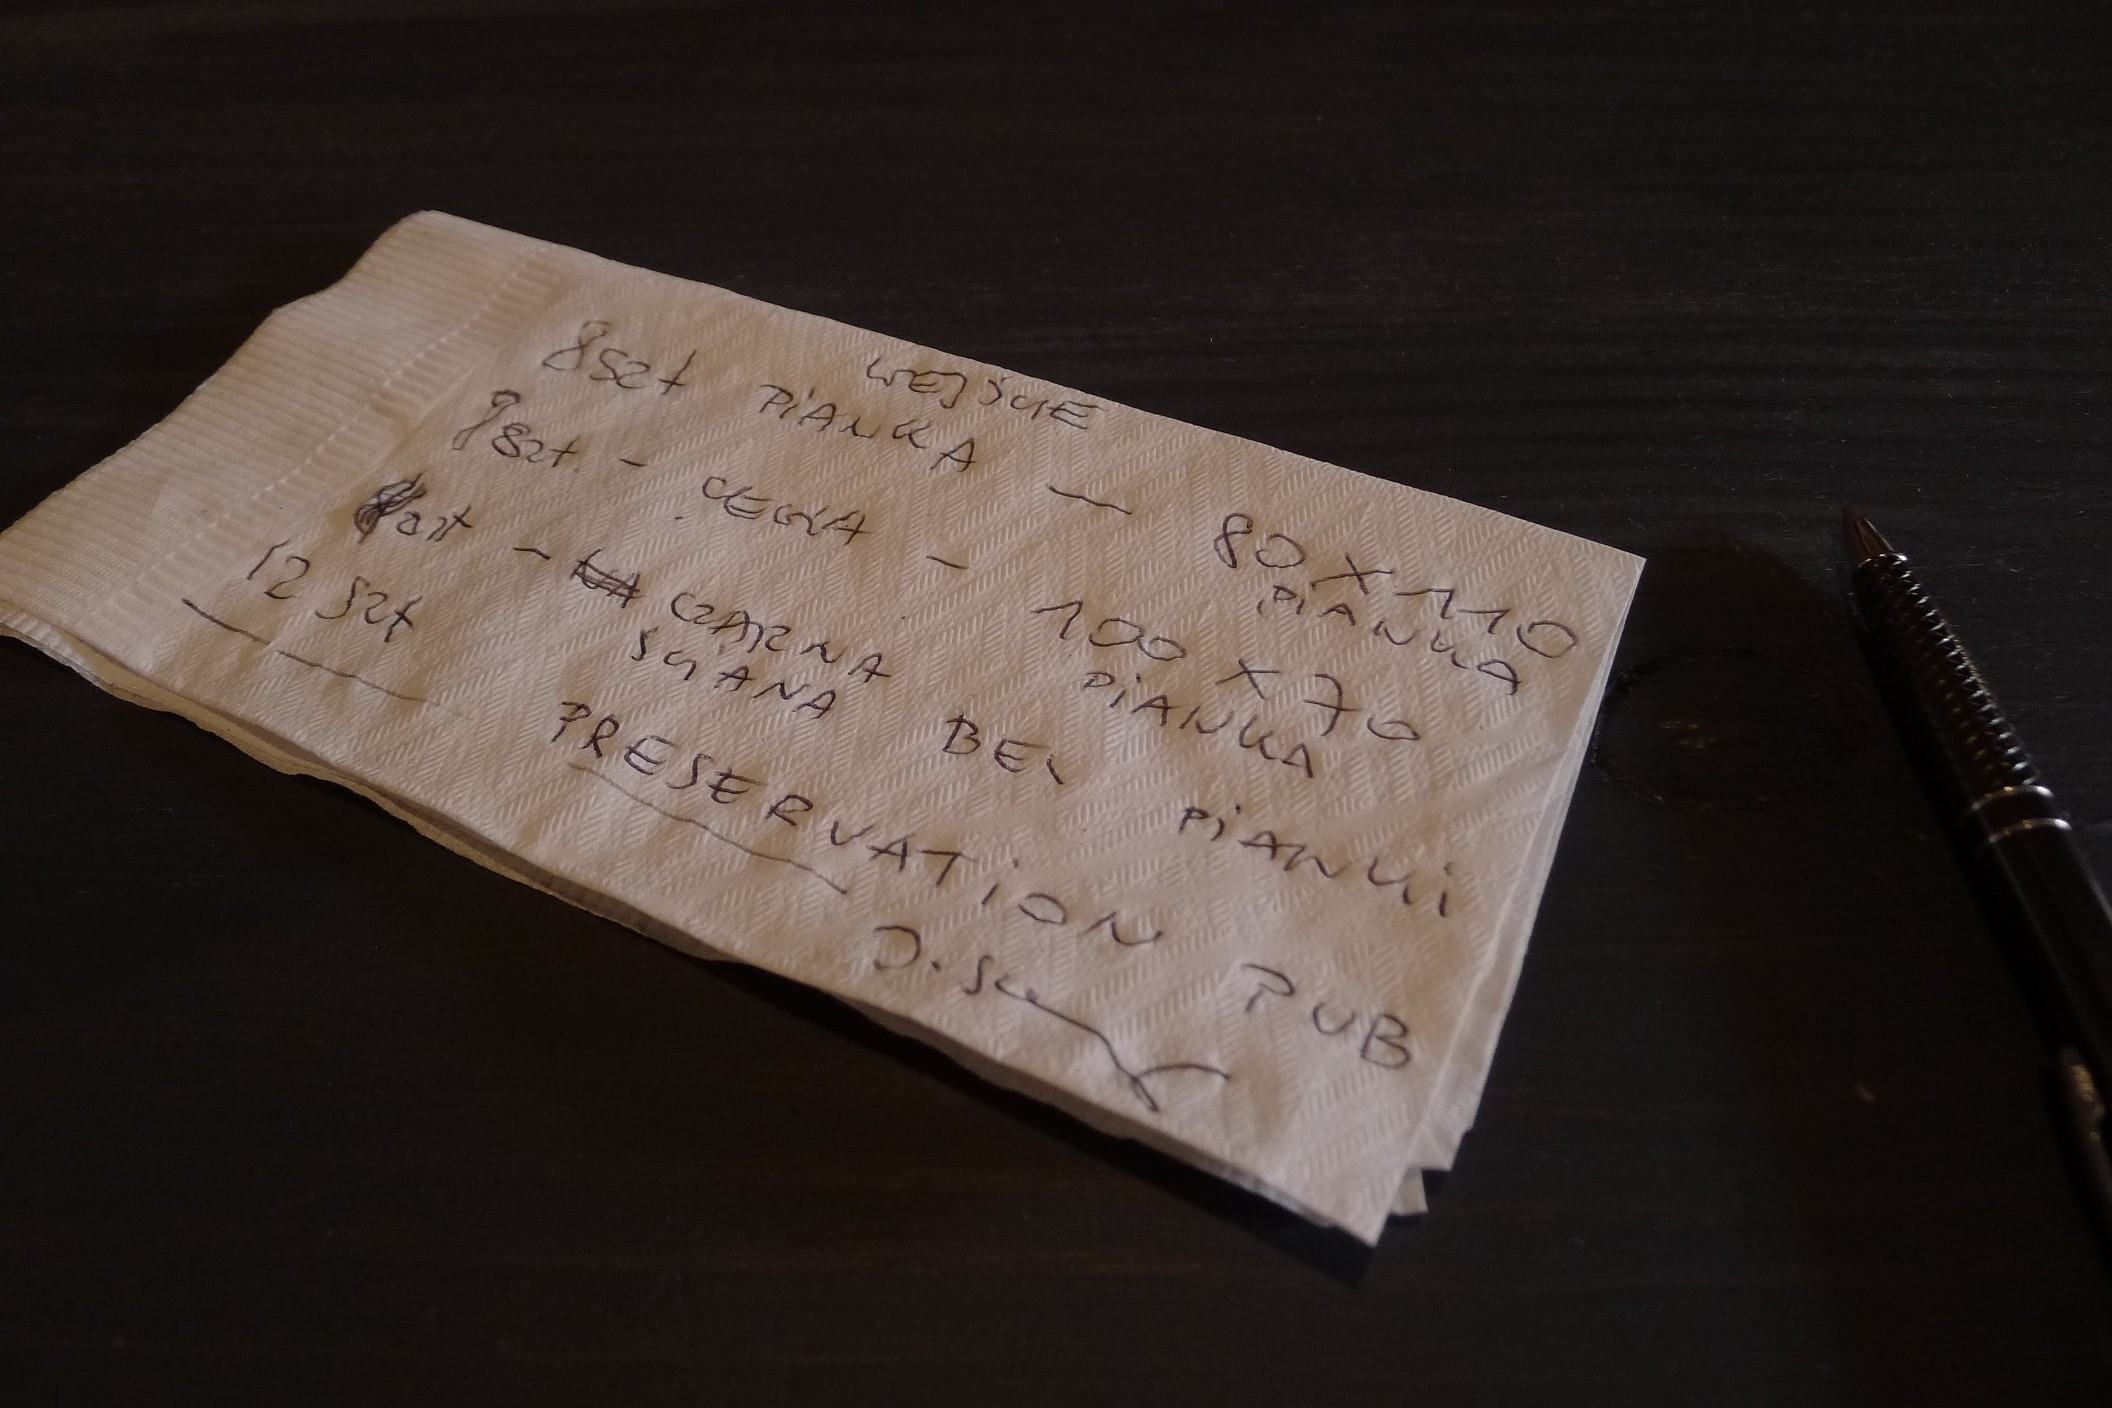 WEJŚCIE
8szt PIANKA — 80 X 110
PIANKA
8szt. - CEGŁA - 100 X 70
PIANKA
szt - CZARNA BEZ PIANKI
ŚCIANA
12 szt
PRESERVATION PUB